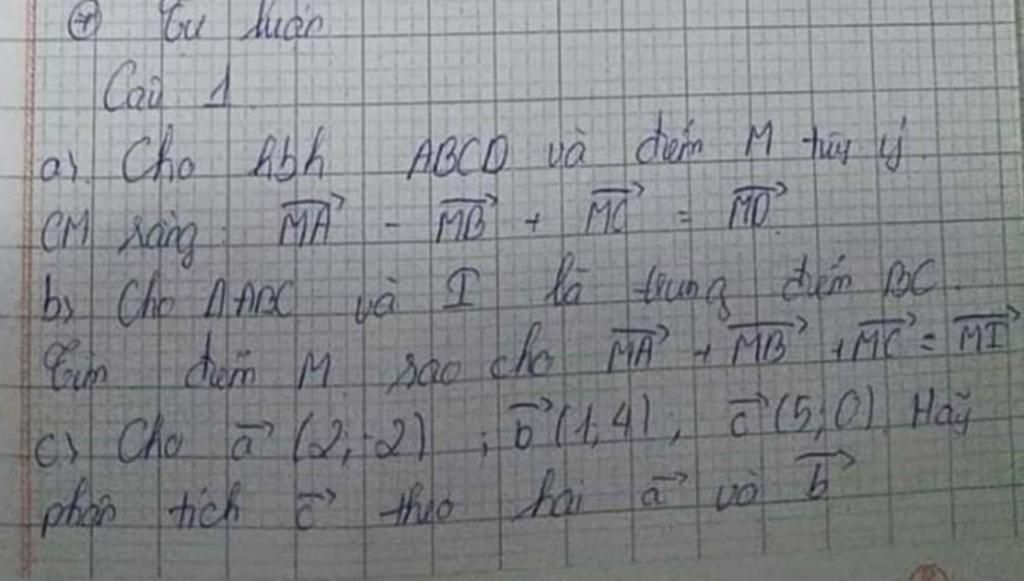 ⊛ Tự luận
Câu 1
a) Cho hbh ABCD và điểm M tùy ý
CM rằng: MA→ - MB→ + MC→ = MD→.
b) Cho ΔABC và I là trung điểm BC.
Tìm điểm M sao cho MA→ + MB→ + MC→ = MI→
c) Cho a→ (2;-2), b→ (1,4), c→ (5;0). Hãy
phân tích c→ theo hai a→ và b→